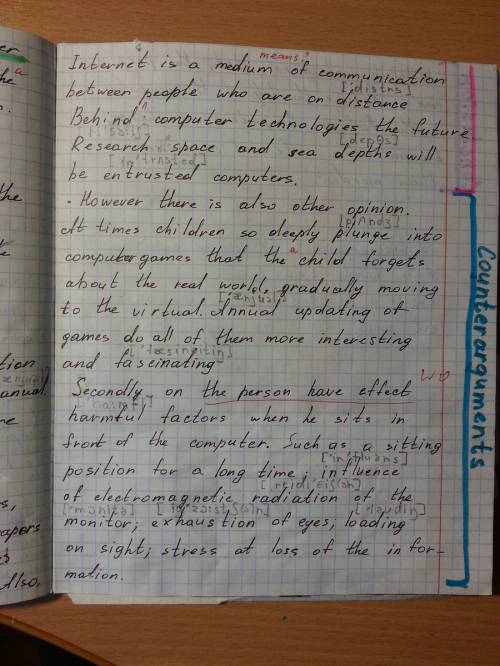 means?
Internet is a medium of communication
[ˈdistns]
between people who are on distance
Behind computer technologies the future.
[depθs]
Research space and sea depths will
[inˈtrʌsted]
be entrusted computers.
· However there is also other opinion.
[plʌndʒ]
At times children so deeply plunge into
computer games that the child forgets
about the real world, gradually moving
[ˈænjuəl]
to the virtual. Annual updating of
games do all of them more interesting
[ˈfæsineitiŋ]
and fascinating
WO
Secondly on the person have effect
harmful factors when he sits in
front of the computer. Such as a sitting
[ˈinfluəns]
position for a long time; influence
[ˌreidiˈeiʃ(ə)n]
of electromagnetic radiation of the
[ˈmɔnitə] [igˈzɔ:stʃ(ə)n] [ˈləudiŋ]
monitor; exhaustion of eyes; loading
on sight; stress at loss of the infor-
mation.
Counterarguments
the
the
anual.
apers
Also,